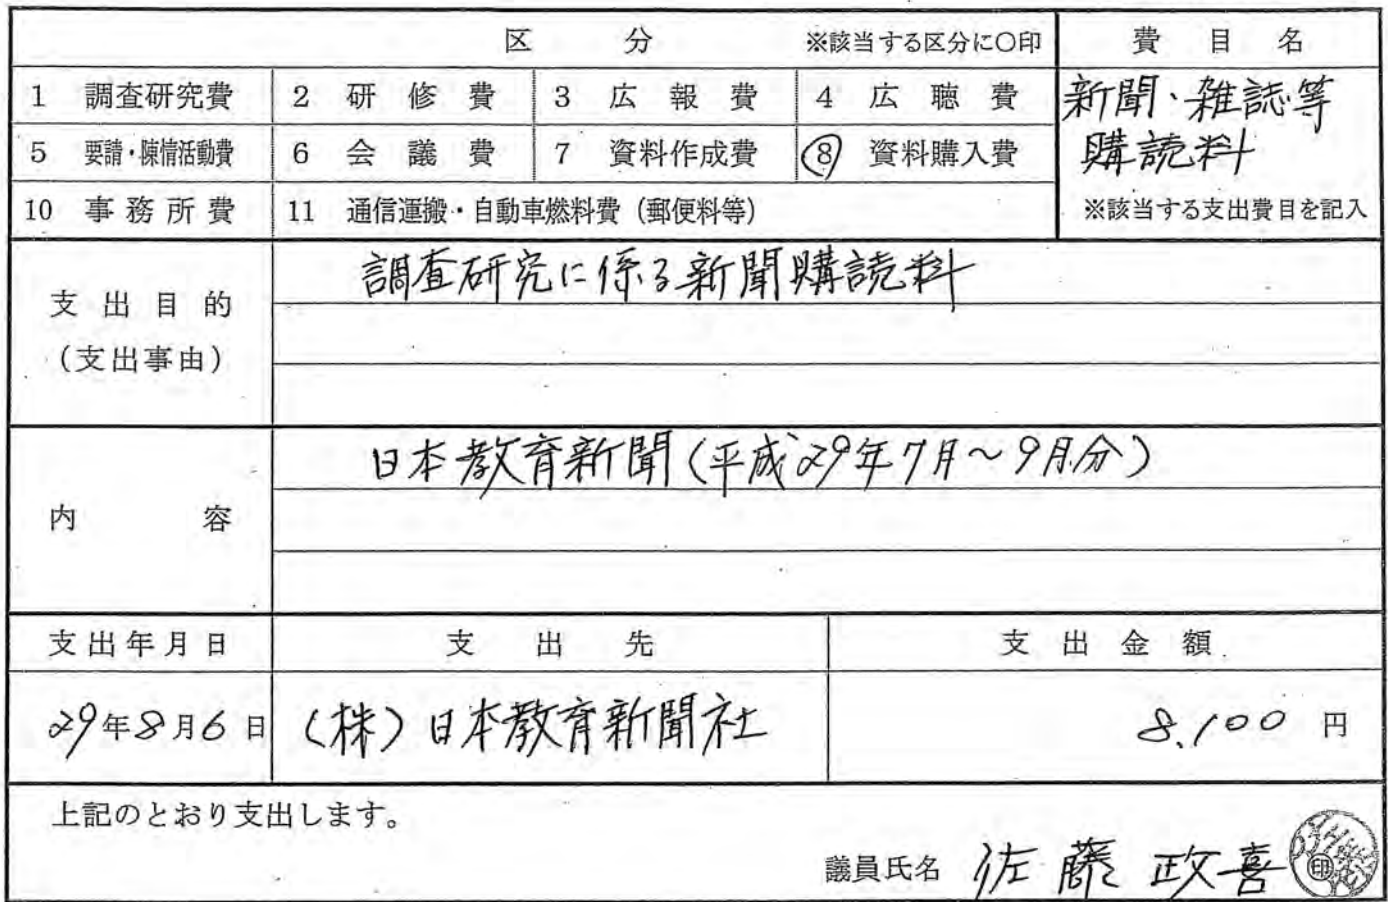 区 分 ※該当する区分に○印
費 目 名
1 調査研究費 2 研修費 3 広報費 4 広聴費
5 要請・陳情活動費 6 会議費 7 資料作成費 ⑧ 資料購入費
10 事務所費 11 通信運搬・自動車燃料費（郵便料等）
新聞・雑誌等
購読料
※該当する支出費目を記入
支出目的
（支出事由）
調査研究に係る新聞購読料
内 容
日本教育新聞（平成29年7月～9月分）
支出年月日 支 出 先 支 出 金 額
29年8月6日 （株）日本教育新聞社 8,100円
上記のとおり支出します。
議員氏名 佐藤 政喜 印